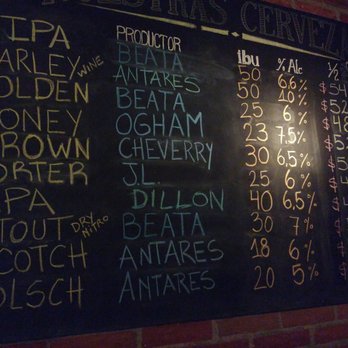 NUESTRAS CERVEZA
PRODUCTOR ibu % Alc 1/2
IPA BEATA 50 6.6% $54
ARLEY WINE ANTARES 50 10% $52
OLDEN BEATA 25 6% $48
ONEY OGHAM 23 7.5% $5
ROWN CHEVERRY 30 6.5% $
ORTER J.L. 25 6% $
IPA DILLON 40 6.5% $
TOUT DRY NITRO BEATA 30 7% $
COTCH ANTARES 18 6% $
OLSCH ANTARES 20 5% $